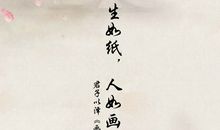 生如纸，人如画
君子以泽《画